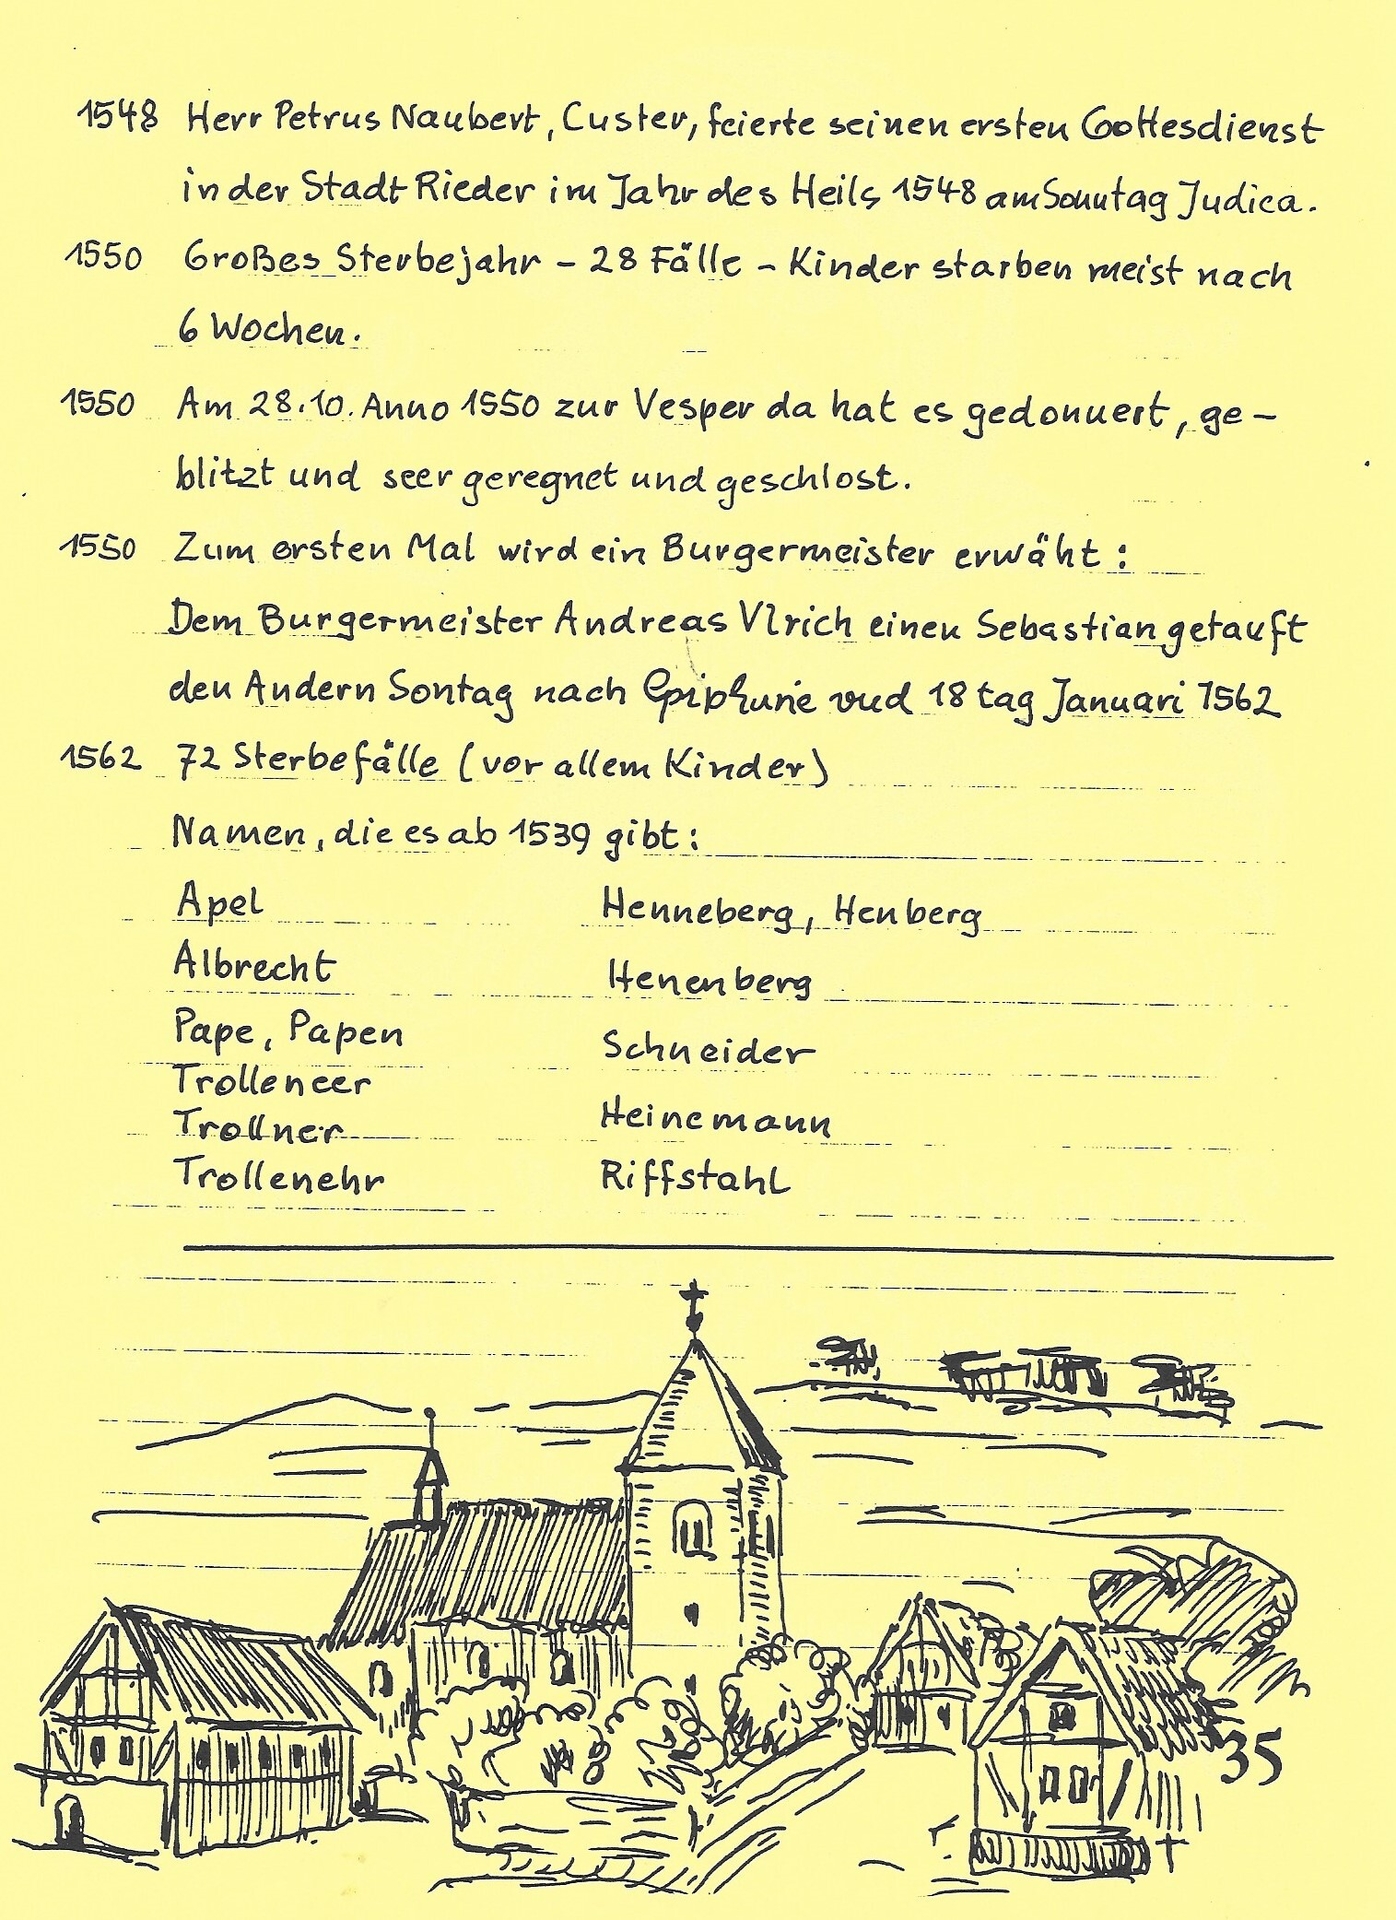 1548 Herr Petrus Naubert, Custer, feierte seinen ersten Gottesdienst
in der Stadt Rieder im Jahr des Heils 1548 am Sonntag Judica.
1550 Großes Sterbejahr – 28 Fälle – Kinder starben meist nach
6 Wochen.
1550 Am 28.10. Anno 1550 zur Vesper da hat es gedonnert, ge–
blitzt und seer geregnet und geschlost.
1550 Zum ersten Mal wird ein Burgermeister erwäht:
Dem Burgermeister Andreas Vlrich einen Sebastian getauft
den Andern Sontag nach Epiphanie vnd 18 tag Januari 1562
1562 72 Sterbefälle (vor allem Kinder)
Namen, die es ab 1539 gibt:
Apel Henneberg, Henberg
Albrecht Henenberg
Pape, Papen Schneider
Trolleneer
Trollner Heinemann
Trollenehr Riffstahl
35